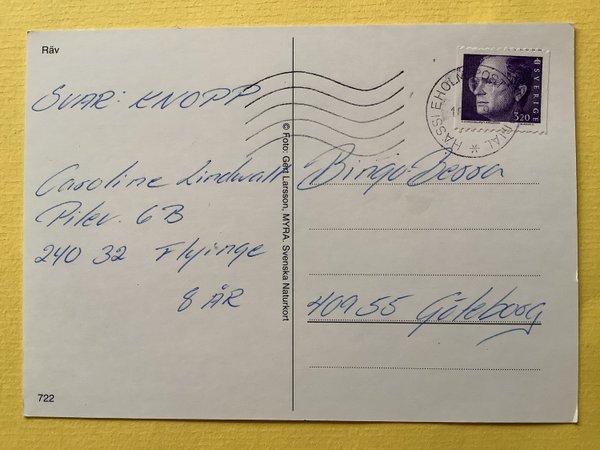 Räv
SVAR: KNOPP
Caroline Lindwall
Pilev. 6B
240 32 Flyinge
8 ÅR
© Foto: Gert Larsson, MYRA, Svenska Naturkort
722
HÄSSLEHOLM
SVERIGE
320
Bingo-Bessa
409 55 Göteborg